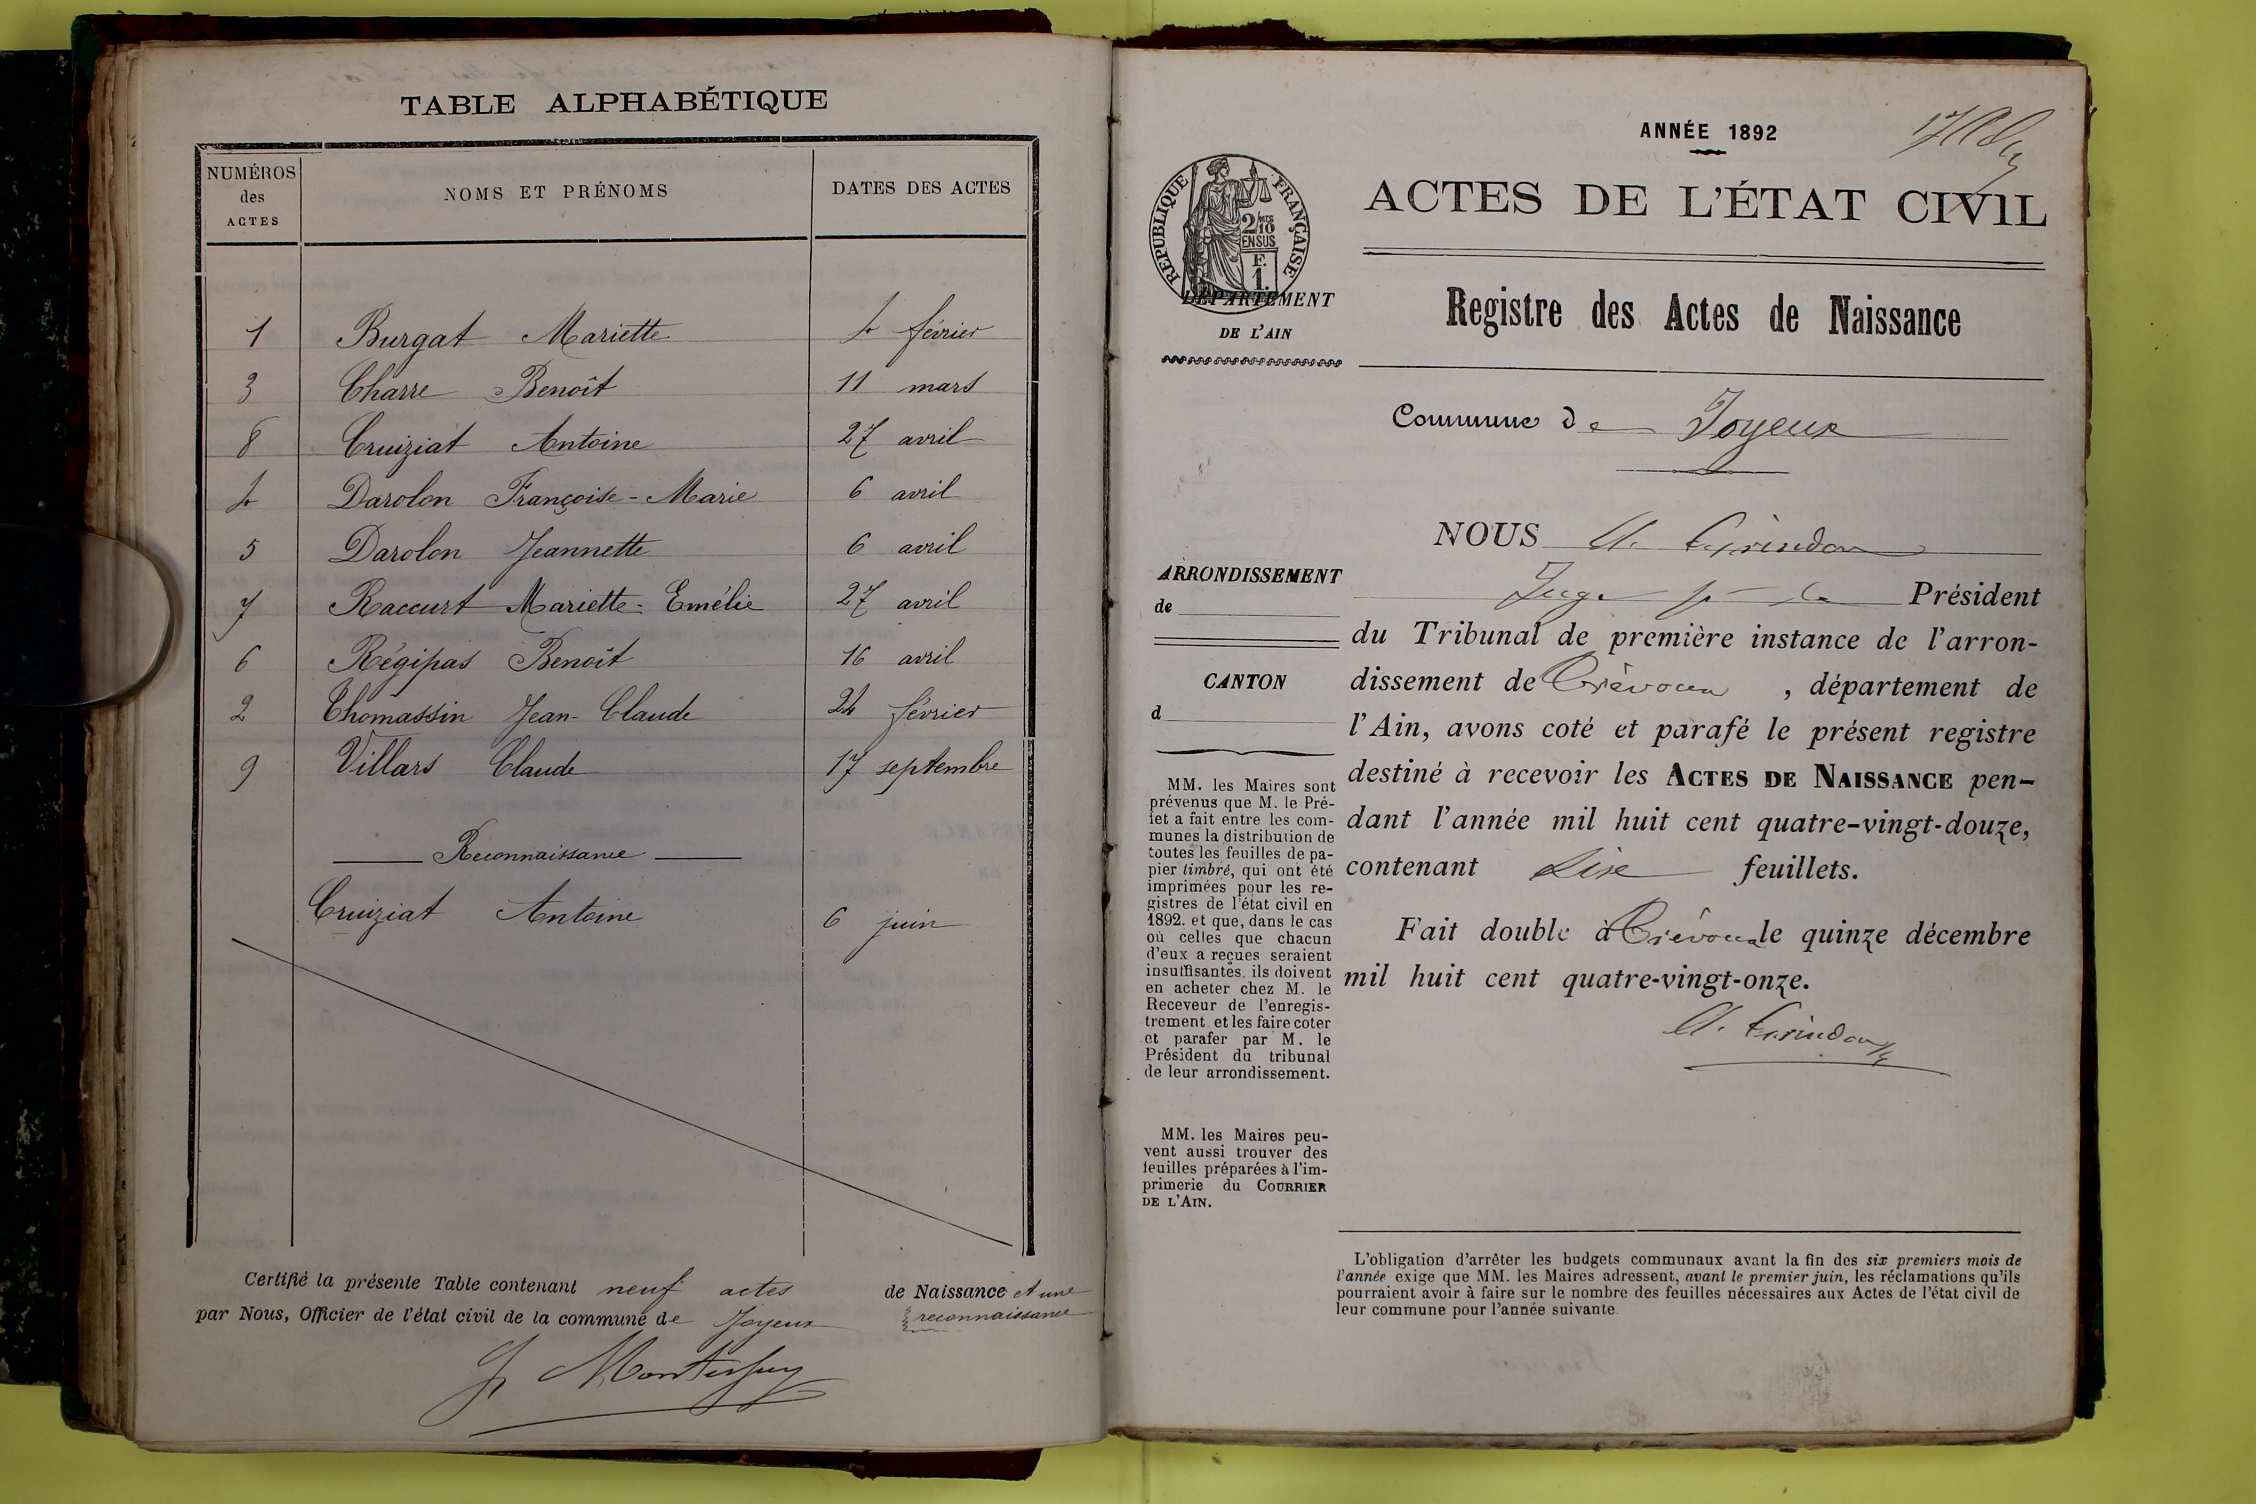 TABLE ALPHABÉTIQUE
NUMÉROS
des
ACTES
NOMS ET PRÉNOMS
DATES DES ACTES
1 Burgat Mariette 4 février
3 Charre Benoît 11 mars
8 Cruiziat Antoine 27 avril
4 Darolon Françoise-Marie 6 avril
5 Darolon Jeannette 6 avril
7 Raccurt Mariette-Emélie 27 avril
6 Régipas Benoît 16 avril
2 Thomassin Jean-Claude 24 février
9 Villars Claude 17 septembre
Reconnaissance
Cruiziat Antoine 6 juin
Certifié la présente Table contenant neuf actes de Naissance et une
par Nous, Officier de l'état civil de la commune de Joyeux reconnaissance
ANNÉE 1892
ACTES DE L'ÉTAT CIVIL
RÉPUBLIQUE FRANÇAISE
2/10
EN SUS
F.
1.
DÉPARTEMENT
DE L'AIN
Registre des Actes de Naissance
Commune de Joyeux
NOUS
ARRONDISSEMENT
de
CANTON
d
Juge Président
du Tribunal de première instance de l'arron-
dissement de Trévoux, département de
l'Ain, avons coté et parafé le présent registre
destiné à recevoir les ACTES DE NAISSANCE pen-
dant l'année mil huit cent quatre-vingt-douze,
contenant six feuillets.
Fait double à Trévoux le quinze décembre
mil huit cent quatre-vingt-onze.
MM. les Maires sont
prévenus que M. le Pré-
fet a fait entre les com-
munes la distribution de
toutes les feuilles de pa-
pier timbré, qui ont été
imprimées pour les re-
gistres de l'état civil en
1892. et que, dans le cas
où celles que chacun
d'eux a reçues seraient
insuffisantes, ils doivent
en acheter chez M. le
Receveur de l'enregis-
trement et les faire coter
et parafer par M. le
Président du tribunal
de leur arrondissement.
MM. les Maires peu-
vent aussi trouver des
feuilles préparées à l'im-
primerie du COURRIER
DE L'AIN.
L'obligation d'arrêter les budgets communaux avant la fin des six premiers mois de
l'année exige que MM. les Maires adressent, avant le premier juin, les réclamations qu'ils
pourraient avoir à faire sur le nombre des feuilles nécessaires aux Actes de l'état civil de
leur commune pour l'année suivante.